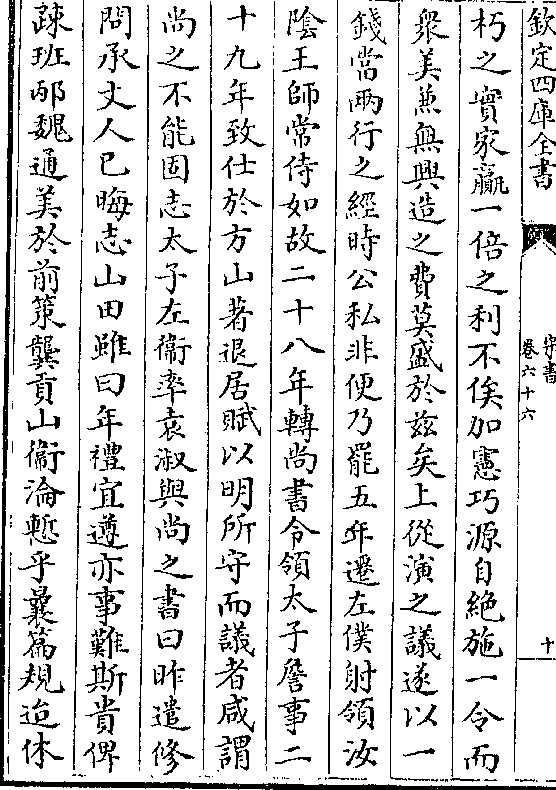 欽定四庫全書
宋書
卷六十六
十
朽之實家贏一倍之利不俟加憲巧源自絶施一令而
衆美兼無興造之費莫盛於兹矣上從演之議遂以一
錢當兩行之經時公私非便乃罷五年遷左僕射領汝
陰王師常侍如故二十八年轉尚書令領太子詹事二
十九年致仕於方山著退居賦以明所守而議者咸謂
尚之不能固志太子左衞率袁淑與尚之書曰昨遣修
問承丈人已晦志山田雖曰年禮宜遵亦事難斯貴俾
疎班邴魏通美於前策龔貢山衞淪慙乎曩篇規迨休